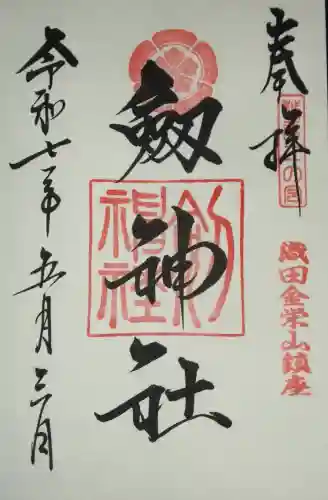 奉拝
越前の国
織田金栄山鎮座
劔神社
劔神社
令和七年五月三日